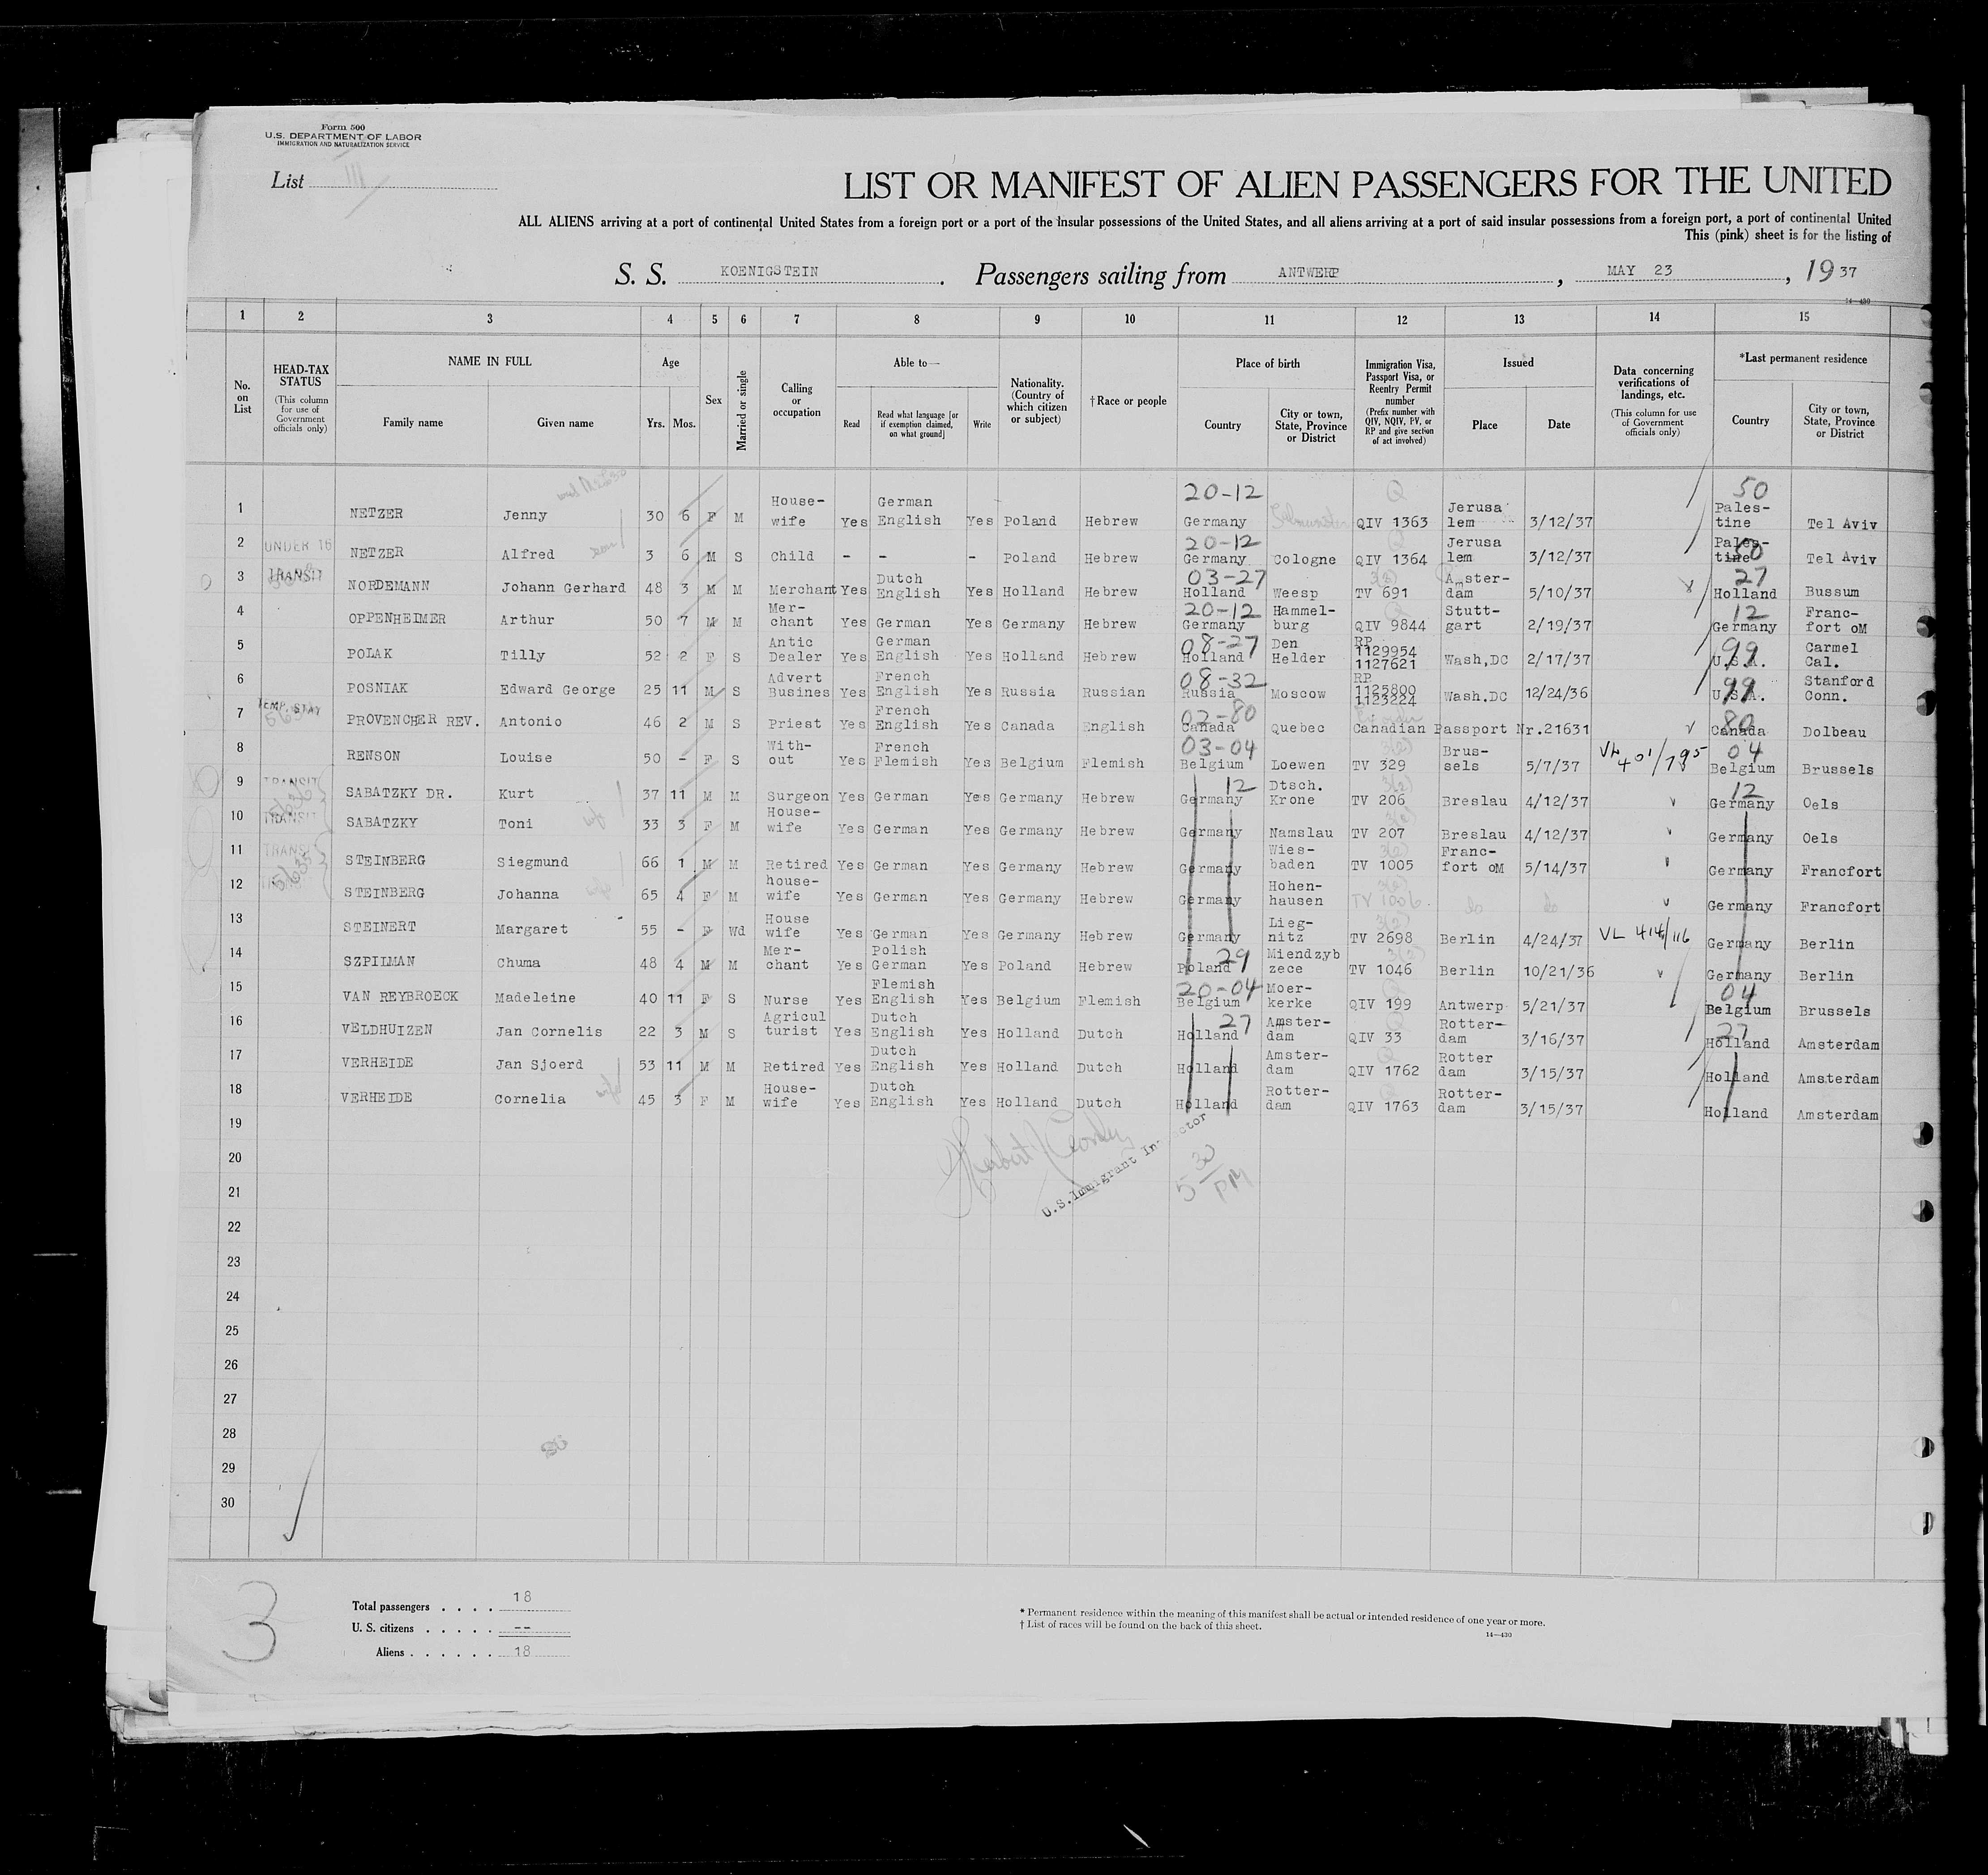 Form 500
U.S. DEPARTMENT OF LABOR
IMMIGRATION AND NATURALIZATION SERVICE
List III
LIST OR MANIFEST OF ALIEN PASSENGERS FOR THE UNITED
ALL ALIENS arriving at a port of continental United States from a foreign port or a port of the insular possessions of the United States, and all aliens arriving at a port of said insular possessions from a foreign port, a port of continental United
This (pink) sheet is for the listing of
S. S. KOENIGSTEIN. Passengers sailing from ANTWERP, MAY 23, 19 37
14—430
1 2 3 4 5 6 7 8 9 10 11 12 13 14 15
No. on List
HEAD-TAX STATUS (This column for use of Government officials only)
NAME IN FULL Family name Given name
Age Yrs. Mos.
Sex
Married or single
Calling or occupation
Able to— Read Read what language [or if exemption claimed, on what ground] Write
Nationality. (Country of which citizen or subject)
†Race or people
Place of birth Country City or town, State, Province or District
Immigration Visa, Passport Visa, or Reentry Permit number (Prefix number with QIV, NQIV, PV, or RP and give section of act involved)
Issued Place Date
Data concerning verifications of landings, etc. (This column for use of Government officials only)
*Last permanent residence Country City or town, State, Province or District
1 NETZER Jenny 30 6 F M House-wife Yes German English Yes Poland Hebrew 20-12 Germany Q QIV 1363 Jerusalem 3/12/37 50 Pales-tine Tel Aviv
2 UNDER 16 NETZER Alfred son 3 6 M S Child - - - Poland Hebrew 20-12 Germany Cologne Q QIV 1364 Jerusalem 3/12/37 50 Pales-tine Tel Aviv
3 TRANSIT NORDEMANN Johann Gerhard 48 3 M M Merchant Yes Dutch English Yes Holland Hebrew 03-27 Holland Weesp TV 691 Amster-dam 5/10/37 27 Holland Bussum
4 OPPENHEIMER Arthur 50 7 M M Mer-chant Yes German Yes Germany Hebrew 20-12 Germany Hammel-burg Q QIV 9844 Stutt-gart 2/19/37 12 Germany Franc-fort oM
5 POLAK Tilly 52 2 F S Antic Dealer Yes German English Yes Holland Hebrew 08-27 Holland Den Helder RP 1129954 1127621 Wash,DC 2/17/37 99 U.S.A. Carmel Cal.
6 POSNIAK Edward George 25 11 M S Advert Busines Yes French English Yes Russia Russian 08-32 Russia Moscow RP 1125800 1123224 Wash.DC 12/24/36 99 U.S.A. Stanford Conn.
7 TEMP. STAY PROVENCHER REV. Antonio 46 2 M S Priest Yes French English Yes Canada English 02-80 Canada Quebec Canadian Passport Nr.21631 80 Canada Dolbeau
8 RENSON Louise 50 - F S With-out Yes French Flemish Yes Belgium Flemish 03-04 Belgium Loewen 3(2) TV 329 Brus-sels 5/7/37 VL 401/795 04 Belgium Brussels
9 TRANSIT SABATZKY DR. Kurt 37 11 M M Surgeon Yes German Yes Germany Hebrew 12 Germany Dtsch. Krone 3(2) TV 206 Breslau 4/12/37 12 Germany Oels
10 TRANSIT SABATZKY Toni wife 33 3 F M House-wife Yes German Yes Germany Hebrew Germany Namslau TV 207 Breslau 4/12/37 Germany Oels
11 TRANSIT STEINBERG Siegmund 66 1 M M Retired Yes German Yes Germany Hebrew Germany Wies-baden 3(2) TV 1005 Franc-fort oM 5/14/37 Germany Francfort
12 STEINBERG Johanna wife 65 4 F M house-wife Yes German Yes Germany Hebrew Germany Hohen-hausen 3(2) TV 1006 do do Germany Francfort
13 STEINERT Margaret 55 - F Wd House wife Yes German Yes Germany Hebrew Germany Lieg-nitz 3(2) TV 2698 Berlin 4/24/37 VL 414/116 Germany Berlin
14 SZPILMAN Chuma 48 4 M M Mer-chant Yes Polish German Yes Poland Hebrew 29 Poland Miendzyb zece 3(2) TV 1046 Berlin 10/21/36 Germany Berlin
15 VAN REYBROECK Madeleine 40 11 F S Nurse Yes Flemish English Yes Belgium Flemish 20-04 Belgium Moer-kerke Q QIV 199 Antwerp 5/21/37 04 Belgium Brussels
16 VELDHUIZEN Jan Cornelis 22 3 M S Agricul turist Yes Dutch English Yes Holland Dutch 27 Holland Amster-dam Q QIV 33 Rotter-dam 3/16/37 27 Holland Amsterdam
17 VERHEIDE Jan Sjoerd 53 11 M M Retired Yes Dutch English Yes Holland Dutch Holland Amster-dam Q QIV 1762 Rotter dam 3/15/37 Holland Amsterdam
18 VERHEIDE Cornelia wife 45 3 F M House-wife Yes Dutch English Yes Holland Dutch Holland Rotter-dam Q QIV 1763 Rotter-dam 3/15/37 Holland Amsterdam
19
20
21
22
23
24
25
26
27
28
29
30
U.S. Immigrant Inspector
5 30 PM
3
Total passengers . . . . 18
U. S. citizens . . . . . --
Aliens . . . . . . 18
* Permanent residence within the meaning of this manifest shall be actual or intended residence of one year or more.
† List of races will be found on the back of this sheet.
14—430